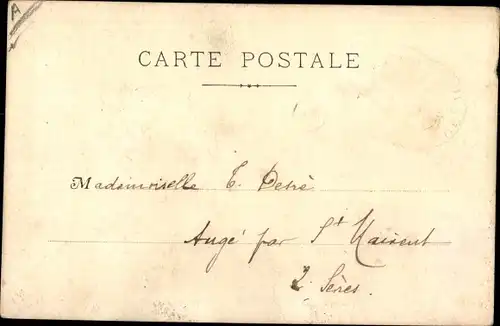 A
CARTE POSTALE
Mademoiselle T. Detré
Augé par St Maixent
2 Sèvres.